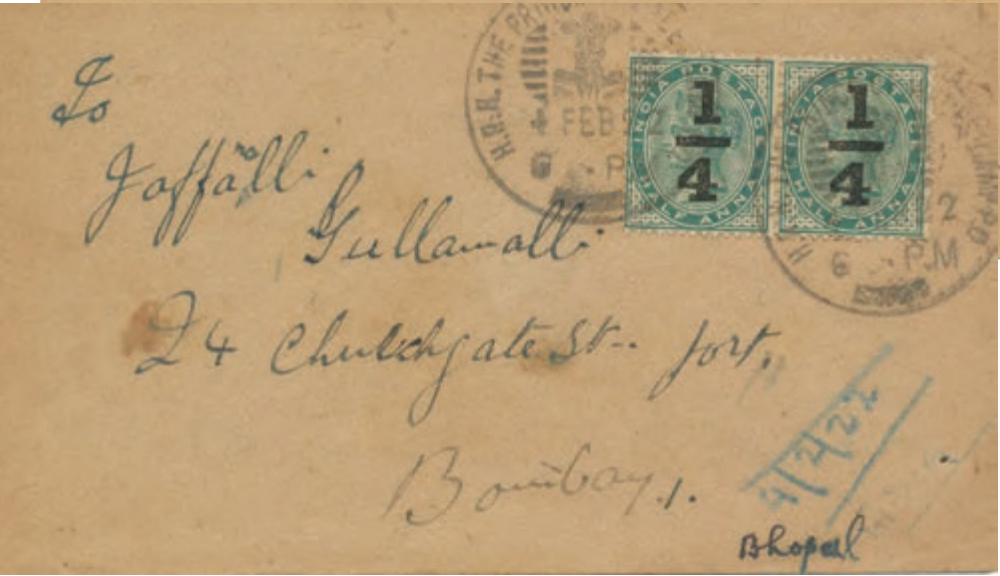 H.R.H. THE PRIN
FEB
6 P
INDIA POSTAGE
1/4
HALF ANNA
INDIA POSTAGE
1/4
HALF ANNA
22
6 P.M
To
Jaffalli
Gullamalli
24 Churchgate St.. fort,
Bombay.1.
4/2/22
Bhopal